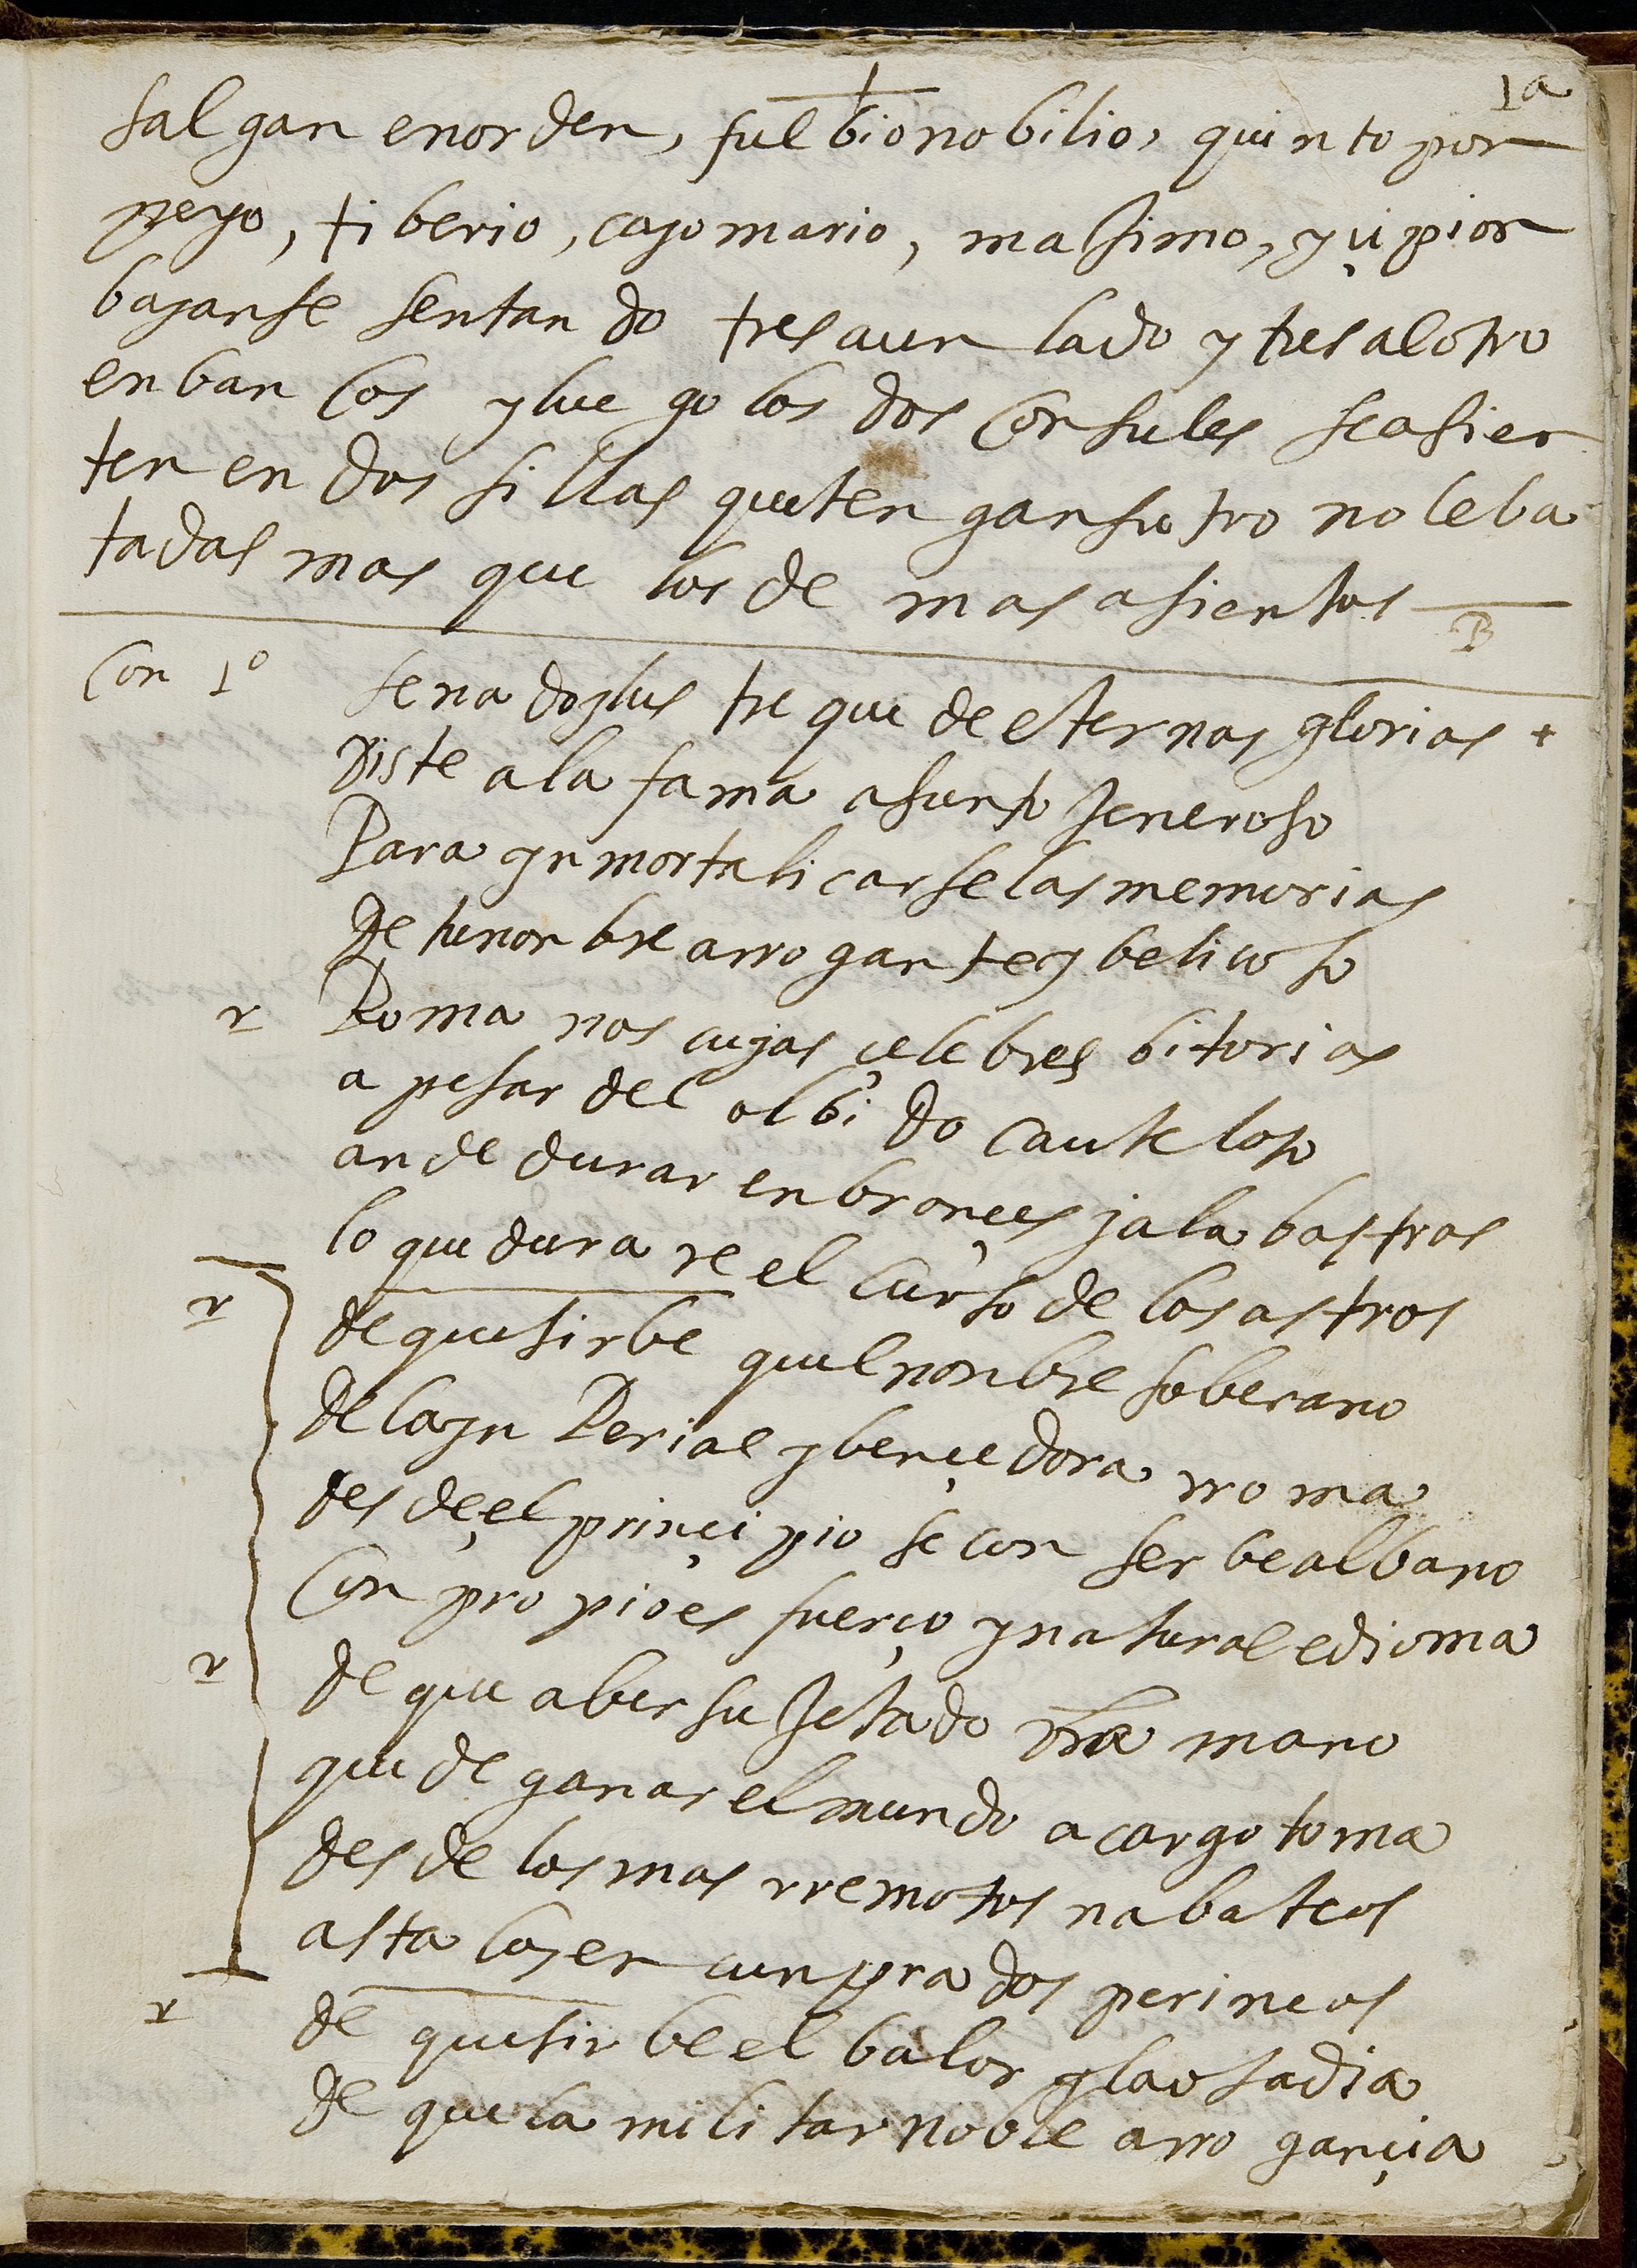 1a
salgan enorden, fulbionobilio, quinto pon
peyo, tiberio, cayomario, masimo, y çipion
bayanse sentando tres aun lado y tres alotro
enbancos y luego los dos consules se asien
ten en dos sillas que tengan su trono leba
tadas mas que los demas asientos
B
Con 1º senado ylustre que de eternas glorias +
Diste a la fama asunto jeneroso
Para ynmortaliçarse las memorias
De tu nonbre arrogante y belicoso
r Romanos cuyas çelebres bitorias
a pesar del olbido cauteloso
an de durar en bronçes y alabastros
lo que durare el curso de los astros
r de que sirbe quel nonbre soberano
de la ynPerial y bençedora rroma
desde el prinçipio se conserbe albano
Con propio esfuerço y natural edioma
r de que aber sujetado vra mano
que de ganar el mundo a cargo toma
desde los mas rremotos nabateos
asta los encunprados perineos
r de que sirbe el balor y la osadia
de que la militar noble arrogançia